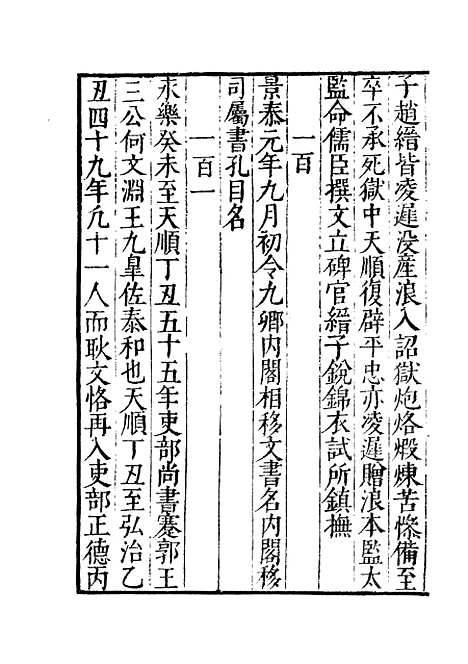 子趙縉皆凌遲没產浪入詔獄炮烙煅煉苦慘備至
卒不承死獄中天順復辟平忠亦凌遲贈浪本監太
監命儒臣撰文立碑官縉子銳錦衣試所鎮撫
一百
景泰元年九月初令九卿内閣相移文書名内閣移
司屬書孔目名
一百一
永樂癸未至天順丁丑五十五年吏部尚書蹇郭王
三公何文淵王九臯佐泰和也天順丁丑至弘治乙
丑四十九年凢十一人而耿文恪再入吏部正德丙